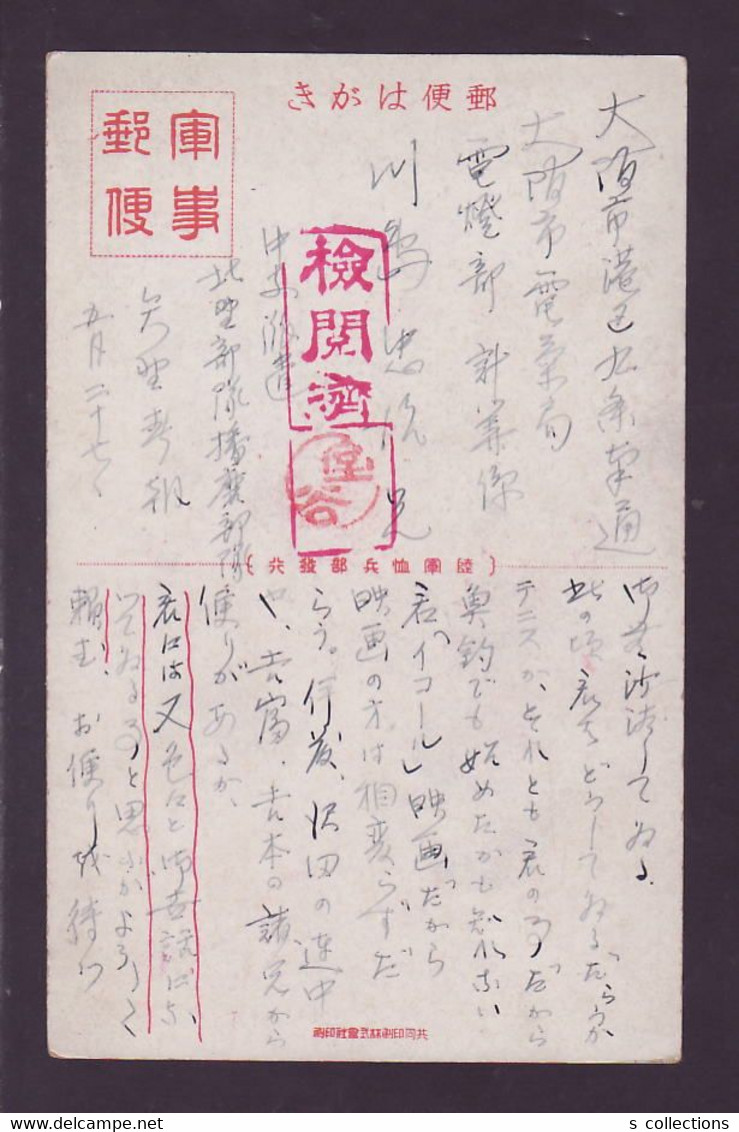 郵便はがき
軍事
郵便
大阪市港区九条南通
大阪市電気局
電燈部計算係
川島忠
検閲済
堂谷
中支派遣
北野部隊播磨部隊
矢野
五月二十七
陸軍恤兵部發行
御無沙汰してゐる。
此の頃、君はどうしてゐるだらうか
テニスか、それとも君の事だから
魚釣でも始めたかも知れない
君「イコール」映画だから
映画の方は相変らずだ
らう。伊藤、沢田の連中
や、吉富、吉本の諸兄から
便りがあるか、
君には又色々と御世話にな
つてゐる事と思ふがよろしく
頼む、お便りを待つ
共同印刷株式會社印刷
s collections